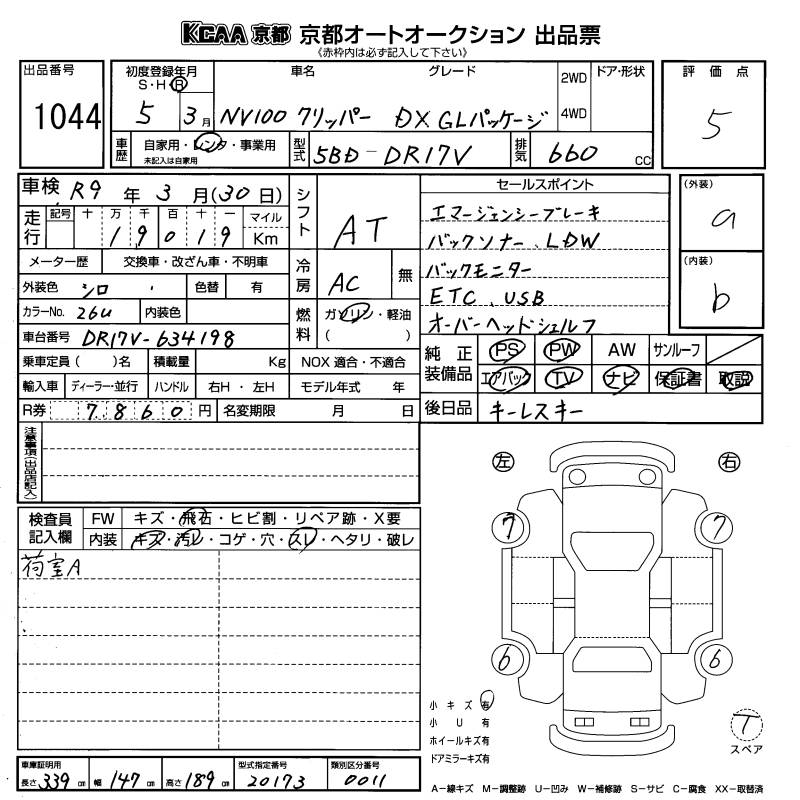 KCAA 京都 京都オートオークション 出品票
《赤枠内は必ず記入して下さい》
出品番号 1044
初度登録年月 S・H・R 5 3月
車名 グレード NV100 クリッパー DX GLパッケージ
2WD 4WD ドア・形状
評価点 5
車歴 自家用・レンタ・事業用 未記入は自家用
型式 5BD-DR17V
排気 660 CC
車検 R9 年 3 月(30日)
走行 記号 十 万 千 百 十 一 マイル Km
19019
メーター歴 交換車・改ざん車・不明車
外装色 シロ 色替 有
カラーNo. 26U 内装色
車台番号 DR17V-634198
乗車定員( )名 積載量 Kg
輸入車 ディーラー・並行 ハンドル 右H・左H
R券 7860 円 名変期限 月 日
シフト AT
冷房 AC 無
燃料 ガソリン・軽油 ( )
NOX 適合・不適合
モデル年式 年
セールスポイント
エマージェンシーブレーキ
バックソナー、LDW
バックモニター
ETC、USB
オーバーヘッドシェルフ
(外装) a
(内装) b
純正装備品 PS PW AW サンルーフ
エアバック TV ナビ 保証書 取説
後日品 キーレスキー
注意事項(出品店記入)
検査員記入欄 FW キズ・飛石・ヒビ割・リペア跡・X要
内装 キズ・汚レ・コゲ・穴・スレ・ヘタリ・破レ
荷室A
左 右
7 7
6 6
小キズ有
小U有
ホイールキズ有
ドアミラーキズ有
T スペア
車庫証明用 長さ339cm 幅147cm 高さ189cm
型式指定番号 20173
類別区分番号 0011
A−線キズ M−調整跡 U−凹み W−補修跡 S−サビ C−腐食 XX−取替済